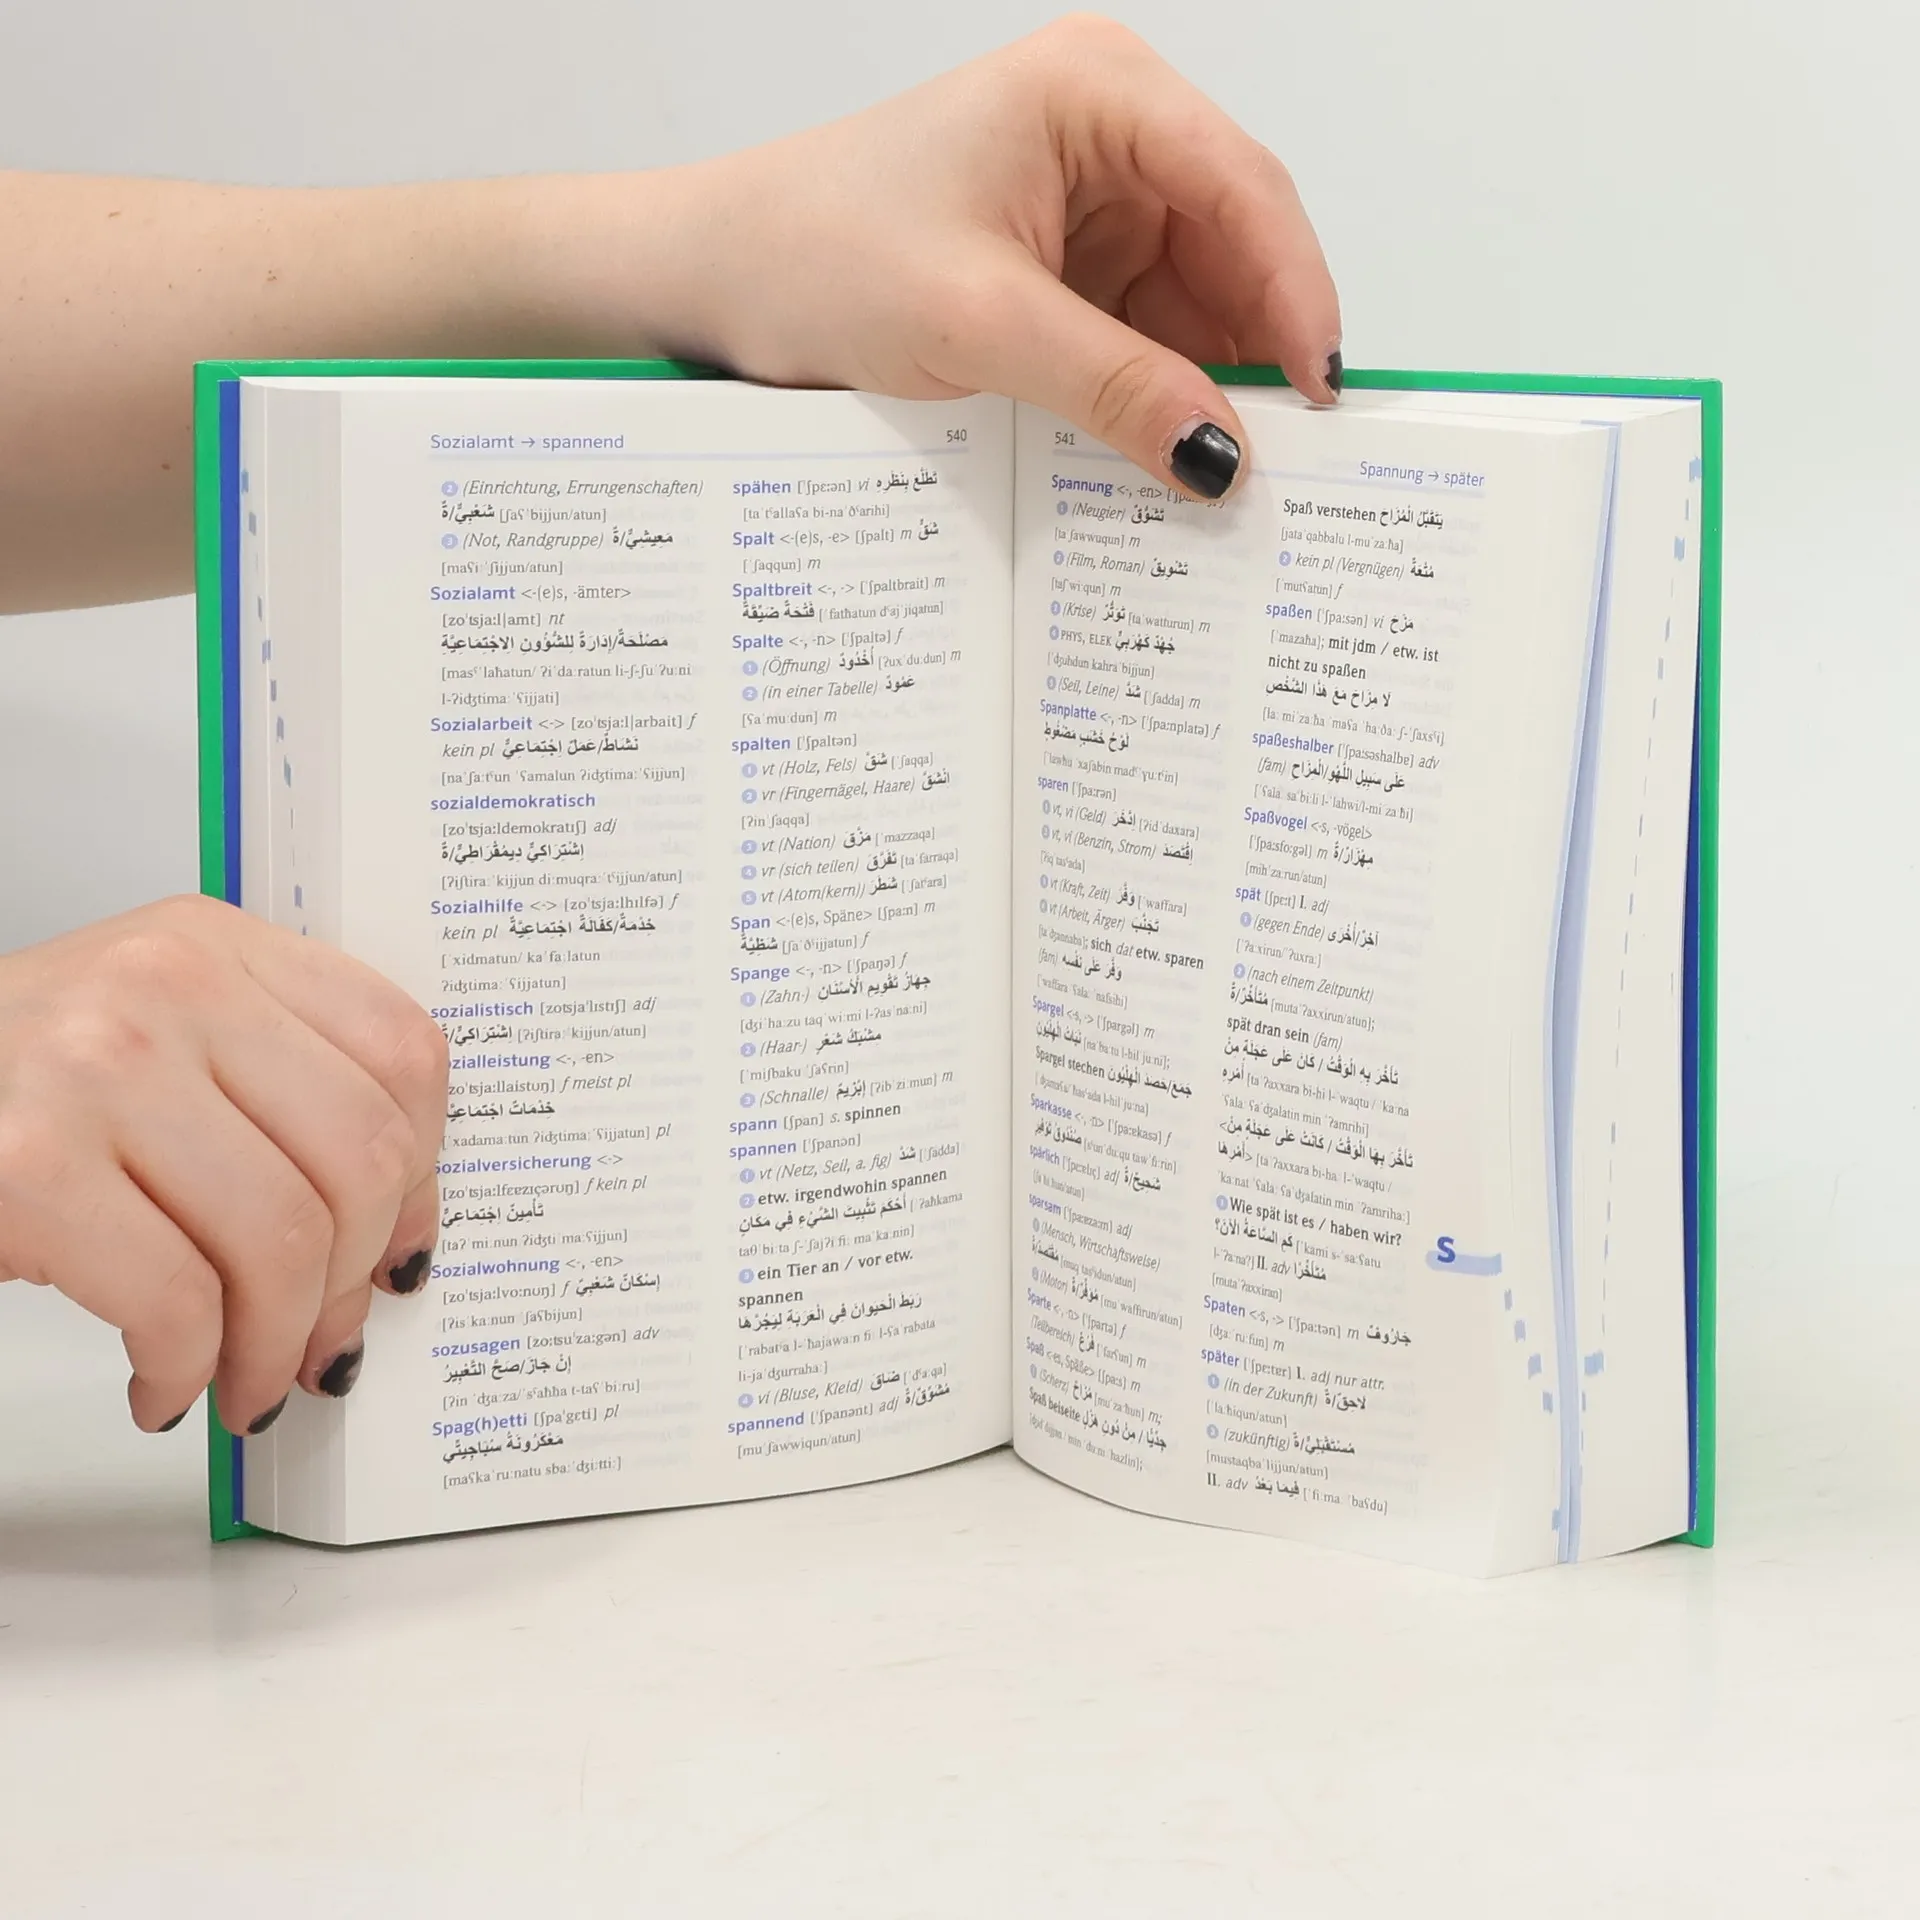 Sozialamt → spannend
540
❷ (Einrichtung, Errungenschaften)
شَعْبِيٌّ/ةٌ [ʃaʕˈbijjun/atun]
❸ (Not, Randgruppe) مَعِيشِيٌّ/ةٌ
[maʕiːˈʃijjun/atun]
Sozialamt <-(e)s, -ämter>
[zoˈtsi̯aːl|amt] nt
مَصْلَحَةٌ/إِدَارَةٌ لِلشُّؤُونِ الاِجْتِمَاعِيَّةِ
[masˤˈlaħatun/ ʔiˈdaːratun li-ʃ-ʃuˈʔuːni
l-ʔidʒtimaːˈʕijjati]
Sozialarbeit <-> [zoˈtsi̯aːl|arbait] f
kein pl نَشَاطٌ/عَمَلٌ اِجْتِمَاعِيٌّ
[naˈʃaːtˤun ˈʕamalun ʔidʒtimaːˈʕijjun]
sozialdemokratisch
[zoˈtsi̯aːldemokratɪʃ] adj
اِشْتِرَاكِيٌّ دِيمُقْرَاطِيٌّ/ةٌ
[ʔiʃtiraːˈkijjun diːmuqraːˈtˤijjun/atun]
Sozialhilfe <-> [zoˈtsi̯aːlhɪlfə] f
kein pl خِدْمَةٌ/كَفَالَةٌ اِجْتِمَاعِيَّةٌ
[ˈxidmatun/ kaˈfaːlatun
ʔidʒtimaːˈʕijjatun]
sozialistisch [zotsi̯aˈlɪstɪʃ] adj
اِشْتِرَاكِيٌّ/ةٌ [ʔiʃtiraːˈkijjun/atun]
ozialleistung <-, -en>
zoˈtsi̯aːllaistʊŋ] f meist pl
خِدْمَاتٌ اِجْتِمَاعِيَّ
[ˈxadamaːtun ʔidʒtimaːˈʕijjatun] pl
Sozialversicherung <->
[zoˈtsi̯aːlfɛɐ̯zɪçərʊŋ] f kein pl
تَأْمِينٌ اِجْتِمَاعِيٌّ
[taʔˈmiːnun ʔidʒtiːmaːˈʕijjun]
Sozialwohnung <-, -en>
[zoˈtsi̯aːlvoːnʊŋ] f إِسْكَانٌ شَعْبِيٌّ
[ʔisˈkaːnun ˈʃaʕbijun]
sozusagen [zoːtsuˈzaːgən] adv
إِنْ جَازَ/صَحَّ التَّعْبِيرُ
[ʔin ˈdʒaːza/ ˈsˤaħħa t-taʕˈbiːru]
Spag(h)etti [ʃpaˈgɛti] pl
مَعْكَرُونَةُ سْبَاجِيتِّي
[maʕkaˈruːnatu sbaːˈdʒiːttiː]
spähen [ˈʃpɛːən] vi تَطَلَّعَ بِنَظَرِهِ
[taˈtˤallaʕa bi-naˈðˤarihi]
Spalt <-(e)s, -e> [ʃpalt] m شَقٌّ
[ˈʃaqqun] m
Spaltbreit <-, -> [ˈʃpaltbrait] m
فَتْحَةٌ ضَيِّقَةٌ [ˈfatħatun dˤajˈjiqatun]
Spalte <-, -n> [ˈʃpaltə] f
❶ (Öffnung) أُخْدُودٌ [ʔuxˈduːdun] m
❷ (in einer Tabelle) عَمُودٌ
[ʕaˈmuːdun] m
spalten [ˈʃpaltən]
❶ vt (Holz, Fels) شَقَّ [ˈʃaqqa]
❷ vr (Fingernägel, Haare) اِنْشَقَّ
[ʔinˈʃaqqa]
❸ vt (Nation) مَزَّقَ [ˈmazzaqa]
❹ vr (sich teilen) تَفَرَّقَ [taˈfarraqa]
❺ vt (Atom(kern)) شَطَرَ [ˈʃatˤara]
Span <-(e)s, Späne> [ʃpaːn] m
شَظِيَّةٌ [ʃaˈðˤijjatun] f
Spange <-, -n> [ˈʃpaŋə] f
❶ (Zahn-) جِهَازُ تَقْوِيمِ الأَسْنَانِ
[dʒiˈhaːzu taqˈwiːmi l-ʔasˈnaːni]
❷ (Haar-) مِشْبَكُ شَعْرٍ
[ˈmiʃbaku ˈʃaʕrin]
❸ (Schnalle) إِبْزِيمٌ [ʔibˈziːmun] m
spann [ʃpan] s. spinnen
spannen [ˈʃpanən]
❶ vt (Netz, Seil, a. fig) شَدَّ [ˈʃadda]
❷ etw. irgendwohin spannen
أَحْكَمَ تَثْبِيتَ الشَّيْءِ فِي مَكَانٍ [ˈʔaħkama
taθˈbiːta ʃ-ˈʃajʔi fiː maˈkaːnin]
❸ ein Tier an / vor etw.
spannen
رَبَطَ الْحَيَوانَ فِي الْعَرَبَةِ لِيَجُرَّهَا
[ˈrabatˤa l-ˈħajawaːn fiː l-ʕaˈrabata
li-jaˈdʒurrahaː]
❹ vi (Bluse, Kleid) ضَاقَ [ˈdˤaːqa]
spannend [ˈʃpanənt] adj مُشَوِّقٌ/ةٌ
[muˈʃawwiqun/atun]
541
Spannung → später
Spannung <-, -en>
❶ (Neugier) تَشَوُّقٌ
[taˈʃawwuqun] m
❷ (Film, Roman) تَشْوِيقٌ
[taʃˈwiːqun] m
❸ (Krise) تَوَتُّرٌ [taˈwatturun] m
❹ PHYS, ELEK جُهْدٌ كَهْرَبِيٌّ
[ˈdʒuhdun kahraˈbijjun]
❺ (Seil, Leine) شَدٌّ [ˈʃadda] m
Spanplatte <-, -n> [ˈʃpaːnplatə] f
لَوْحُ خَشَبٍ مَضْغُوطٍ
[ˈlawħu ˈxaʃabin madˤˈɣuːtˤin]
sparen [ˈʃpaːrən]
❶ vt, vi (Geld) اِدَّخَرَ [ʔidˈdaxara]
❷ vt, vi (Benzin, Strom) اِقْتَصَدَ
[ʔiqˈtasˤada]
❸ vt (Kraft, Zeit) وَفَّرَ [ˈwaffara]
❹ vt (Arbeit, Ärger) تَجَنَّبَ
[taˈdʒannaba]; sich dat etw. sparen
(fam) وَفَّرَ عَلَى نَفْسِهِ
[ˈwaffara ˈʕalaː ˈnafsihi]
Spargel <-s, -> [ˈʃpargəl] m
نَبَاتُ الْهِلْيُونِ [naˈbaːtu l-hilˈjuːni];
Spargel stechen جَمَعَ/حَصَدَ الْهِلْيُونَ
[ˈdʒamaʕa/ ˈħasˤada l-hilˈjuːna]
Sparkasse <-, -n> [ˈʃpaːɐ̯kasə] f
صُنْدُوقُ تَوْفِيرٍ [sˤunˈduːqu tawˈfiːrin]
spärlich [ˈʃpɛːɐ̯lɪç] adj شَحِيحٌ/ةٌ
[ʃaˈħiːħun/atun]
sparsam [ˈʃpaːɐ̯zaːm] adj
❶ (Mensch, Wirtschaftsweise)
مُقْتَصِدٌ/ةٌ [muqˈtasˤidun/atun]
❷ (Motor) مُوَفِّرٌ/ةٌ [muˈwaffirun/atun]
Sparte <-, -n> [ˈʃpartə] f
(Teilbereich) فَرْعٌ [ˈfarʕun] m
Spaß <-es, Späße> [ʃpaːs] m
❶ (Scherz) مُزَاحٌ [muˈzaːħun] m;
Spaß beiseite جِدِّيًّا / مِنْ دُونِ هَزْلٍ
Spaß verstehen يَتَقَبَّلُ الْمُزَاحَ
[jataˈqabbalu l-muˈzaːħa]
❷ kein pl (Vergnügen) مُتْعَةٌ
[ˈmutʕatun] f
spaßen [ˈʃpaːsən] vi مَزَحَ
[ˈmazaħa]; mit jdm / etw. ist
nicht zu spaßen
لَا مِزَاحَ مَعَ هَذَا الشَّخْصِ
[laː miˈzaːħa ˈmaʕa ˈhaːðaː ʃ-ˈʃaxsˤi]
spaßeshalber [ˈʃpaːsəshalbɐ] adv
(fam) عَلَى سَبِيلِ اللَّهْوِ/الْمِزَاحِ
[ˈʕalaː saˈbiːli l-ˈlahwi/l-miˈzaːħi]
Spaßvogel <-s, -vögel>
[ˈʃpaːsfoːgəl] m مِهْزَارٌ/ةٌ
[mihˈzaːrun/atun]
spät [ʃpɛːt] I. adj
❶ (gegen Ende) آخِرٌ/أُخْرَى
[ˈʔaːxirun/ˈʔuxraː]
❷ (nach einem Zeitpunkt)
مُتَأَخِّرٌ/ةٌ [mutaˈʔaxxirun/atun];
spät dran sein (fam)
تَأَخَّرَ بِهِ الْوَقْتُ / كَانَ عَلَى عَجَلَةٍ مِنْ
أَمْرِهِ [taˈʔaxxara bi-hi l-ˈwaqtu / ˈkaːna
ˈʕalaː ˈʕaˈdʒalatin min ˈʔamrihi]
<تَأَخَّرَ بِهَا الْوَقْتُ / كَانَتْ عَلَى عَجَلَةٍ مِنْ
أَمْرِهَا> [taˈʔaxxara bi-haː l-ˈwaqtu /
ˈkaːnat ˈʕalaː ˈʕaˈdʒalatin min ˈʔamrihaː]
❸ Wie spät ist es / haben wir?
كَمِ السَّاعَةُ الآنَ؟ [ˈkami s-ˈsaːʕatu
l-ˈʔaːna?] II. adv مُتَأَخِّرًا
[mutaˈʔaxxiran]
Spaten <-s, -> [ˈʃpaːtən] m جَارُوفٌ
[dʒaːˈruːfun] m
später [ˈʃpɛːtɐ] I. adj nur attr.
❶ (in der Zukunft) لَاحِقٌ/ةٌ
[ˈlaːħiqun/atun]
❷ (zukünftig) مُسْتَقْبَلِيٌّ/ةٌ
[mustaqbaˈlijjun/atun]
II. adv فِيمَا بَعْدُ [ˈfiːmaː ˈbaʕdu]
S